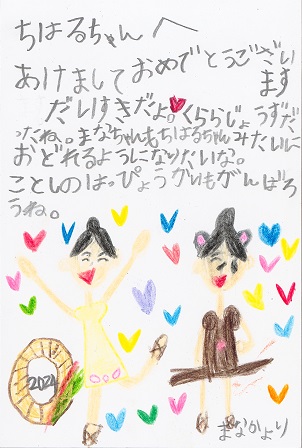 ちはるちゃんへ
あけましておめでとうござい
ます
だいすきだよ。くららじょうずだ
ったね。まなちゃんもちはるちゃんみたいに
おどれるようになりたいな。
ことしのはっぴょうかいもがんばろ
うね。
2024
まなかより